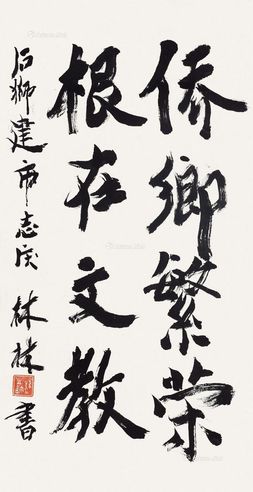 侨鄉繁荣
根在文教
石狮建市志庆 林林书